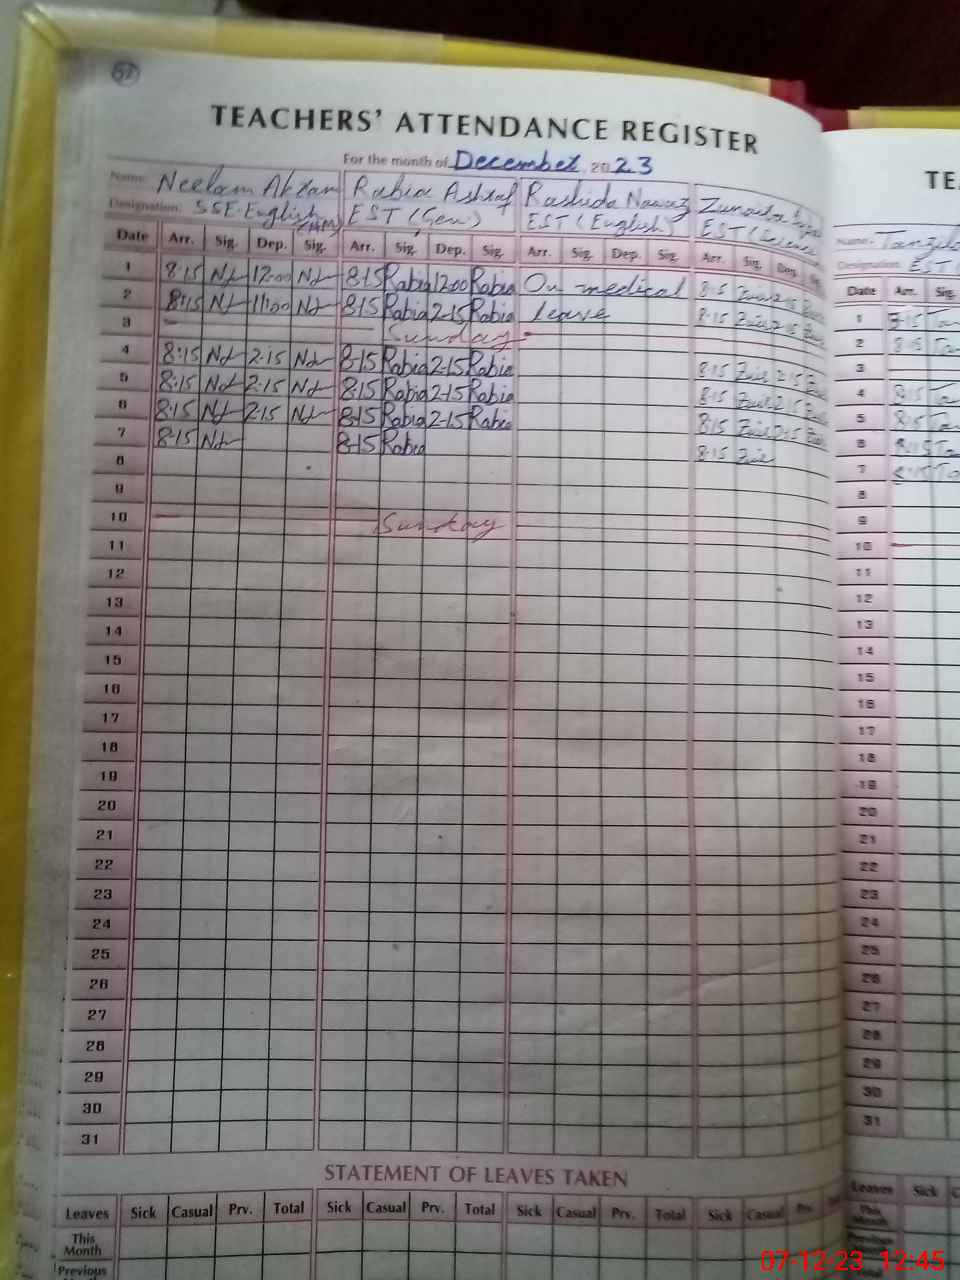 57
TEACHERS' ATTENDANCE REGISTER
For the month of December 2023
Name: Neelam Akram Rabia Ashraf Rashida Nawaz
Designation: SSE-English (HM) EST (Gen) EST (English) EST (Science
Date Arr. Sig. Dep. Sig. Arr. Sig. Dep. Sig. Arr. Sig. Dep. Sig. Arr. Sig. Dep. Sig.
1 8:15 12:00 8:15 Rabia 12:00 Rabia On medical 8:15 2:15
2 8:15 11:00 8:15 Rabia 2-15 Rabia leave 8:15 2:15
3 Sunday
4 8:15 2:15 8:15 Rabia 2-15 Rabia 8:15 2:15
5 8:15 2:15 8:15 Rabia 2-15 Rabia 8:15 2:15
6 8:15 2:15 8:15 Rabia 2-15 Rabia 8:15 2:15
7 8:15 8:15 Rabia 8:15
8
9
10 Sunday
11
12
13
14
15
16
17
18
19
20
21
22
23
24
25
26
27
28
29
30
31
STATEMENT OF LEAVES TAKEN
Leaves Sick Casual Prv. Total Sick Casual Prv. Total Sick Casual Prv. Total Sick Casual Prv.
This Month
Previous
TE
Name:
Designation: EST
Date Arr. Sig.
1 8:15
2 8:15
3
4 8:15
5 8:15
6 8:15
7 8:15
8
9
10
11
12
13
14
15
16
17
18
19
20
21
22
23
24
25
26
27
28
29
30
31
Leaves Sick
This Month
Previous
Total
07-12-23 12:45